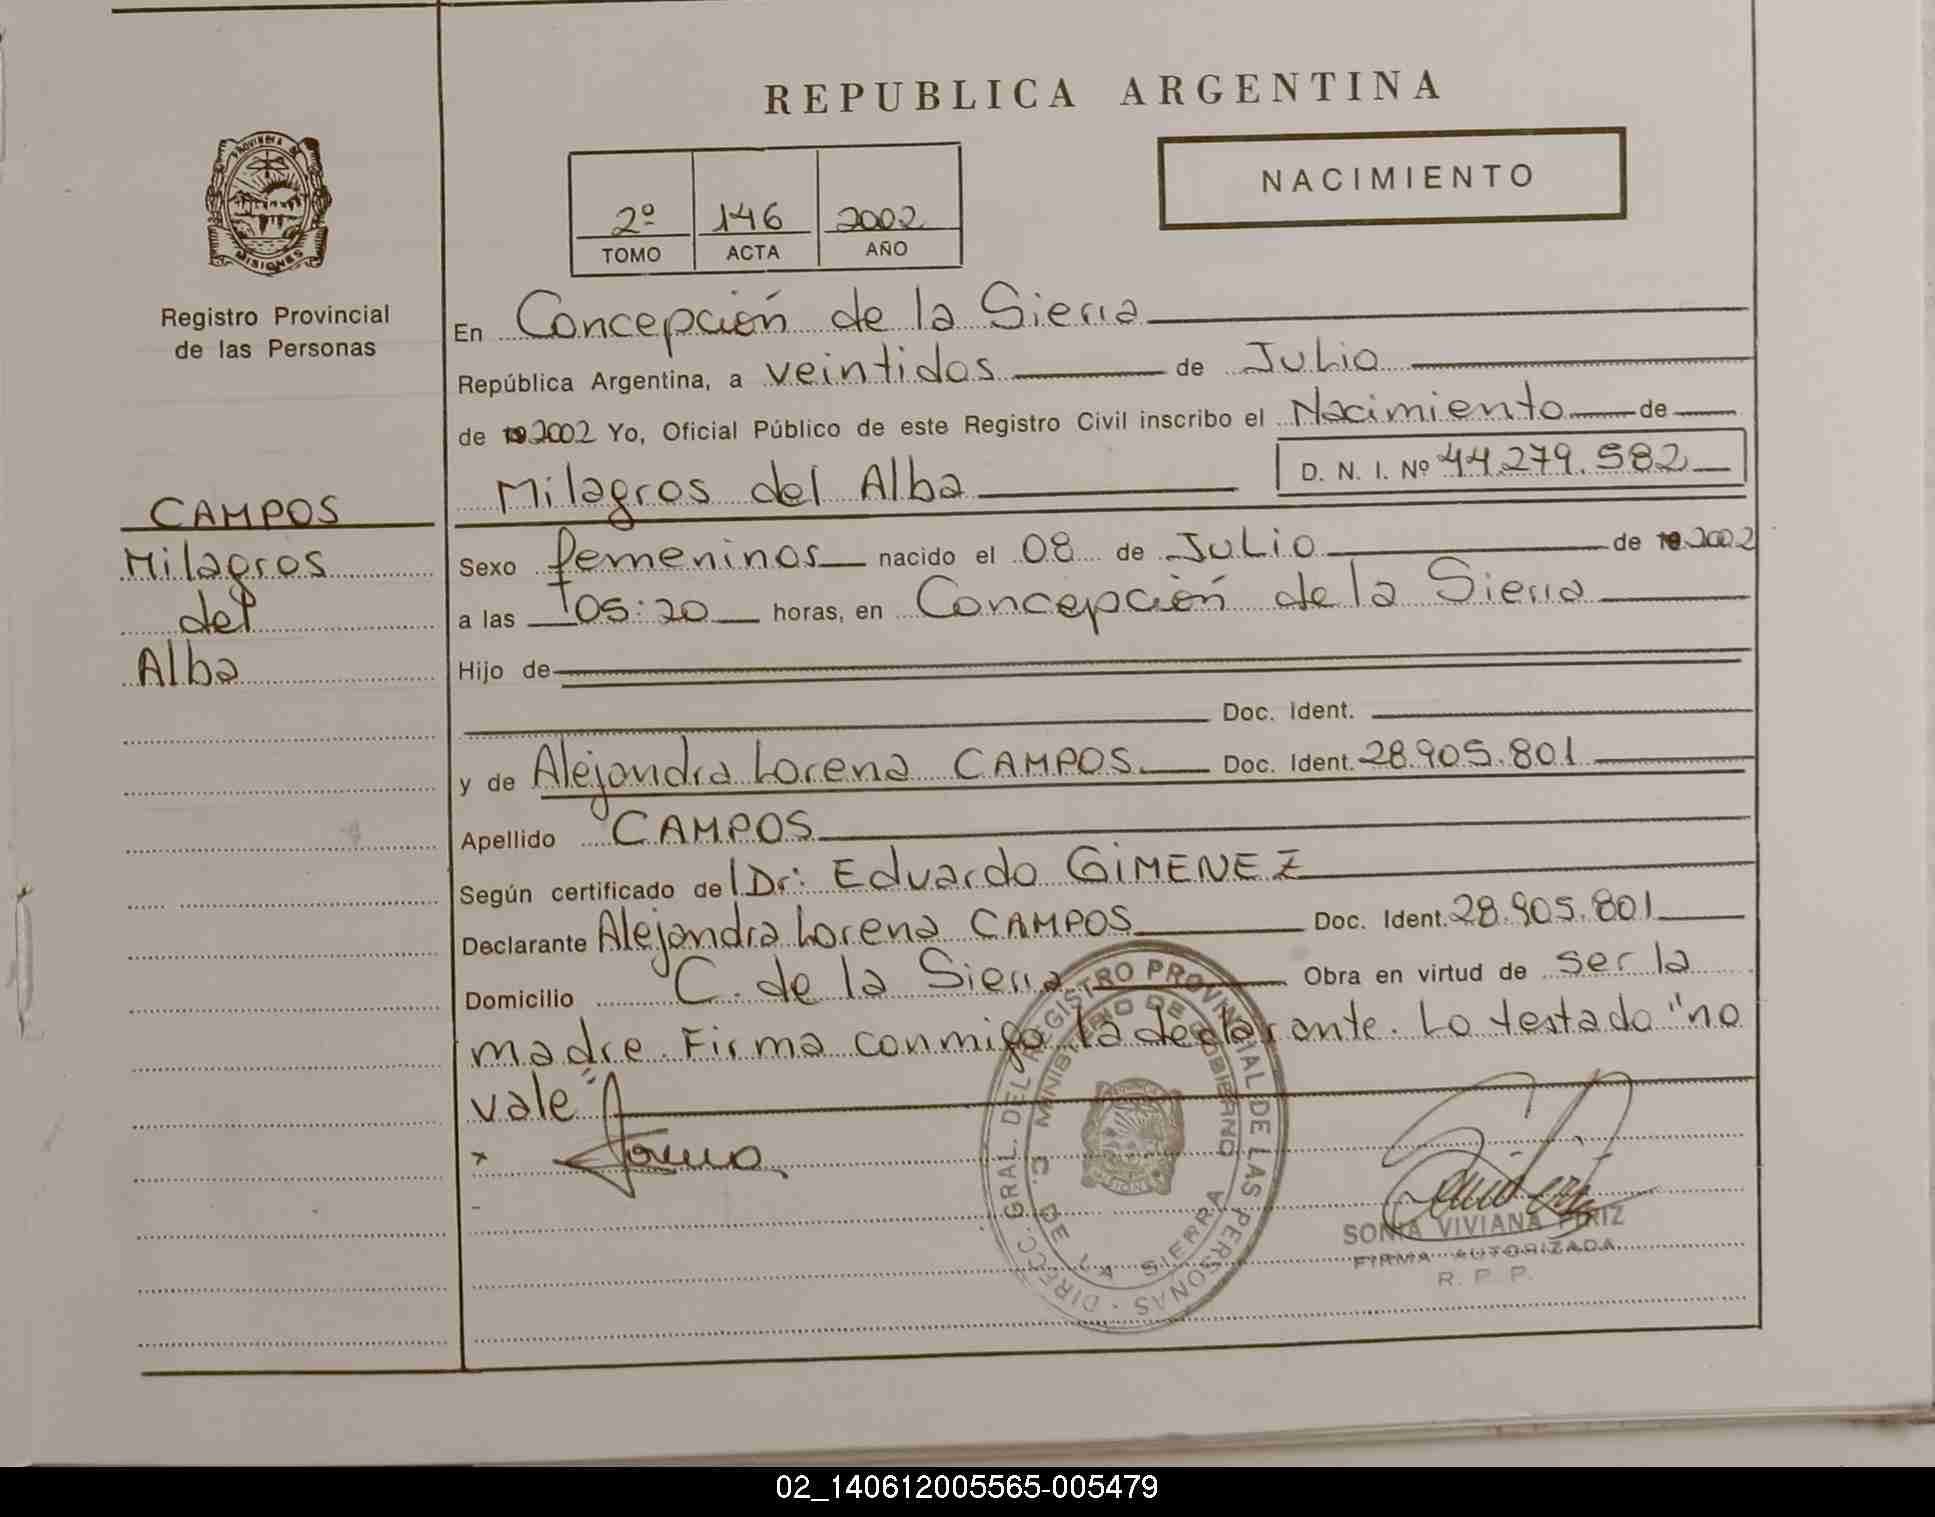 REPUBLICA ARGENTINA
NACIMIENTO
2º 146 2002
TOMO ACTA AÑO
PROVINCIA DE
MISIONES
Registro Provincial
de las Personas
CAMPOS
Milagros
del
Alba
En Concepción de la Sierra
República Argentina, a veintidos de Julio
de 2002 Yo, Oficial Público de este Registro Civil inscribo el Nacimiento de
Milagros del Alba D. N. I. Nº 44.279.582
Sexo femeninos nacido el 08 de Julio de 2002
a las 05:20 horas, en Concepción de la Sierra
Hijo de
Doc. Ident.
y de Alejandra Lorena CAMPOS Doc. Ident. 28.905.801
Apellido CAMPOS
Según certificado del Dr: Eduardo GIMENEZ
Declarante Alejandra Lorena CAMPOS Doc. Ident. 28.905.801
Domicilio C. de la Sierra Obra en virtud de ser la
madre. Firma conmigo la declarante. Lo testado "no
vale"
x
DIRECC. GRAL. DEL REGISTRO PROVINCIAL DE LAS PERSONAS
MINISTERIO DE GOBIERNO
C. DE LA SIERRA
SONIA VIVIANA PIRIZ
FIRMA AUTORIZADA
R. P. P.
02_140612005565-005479